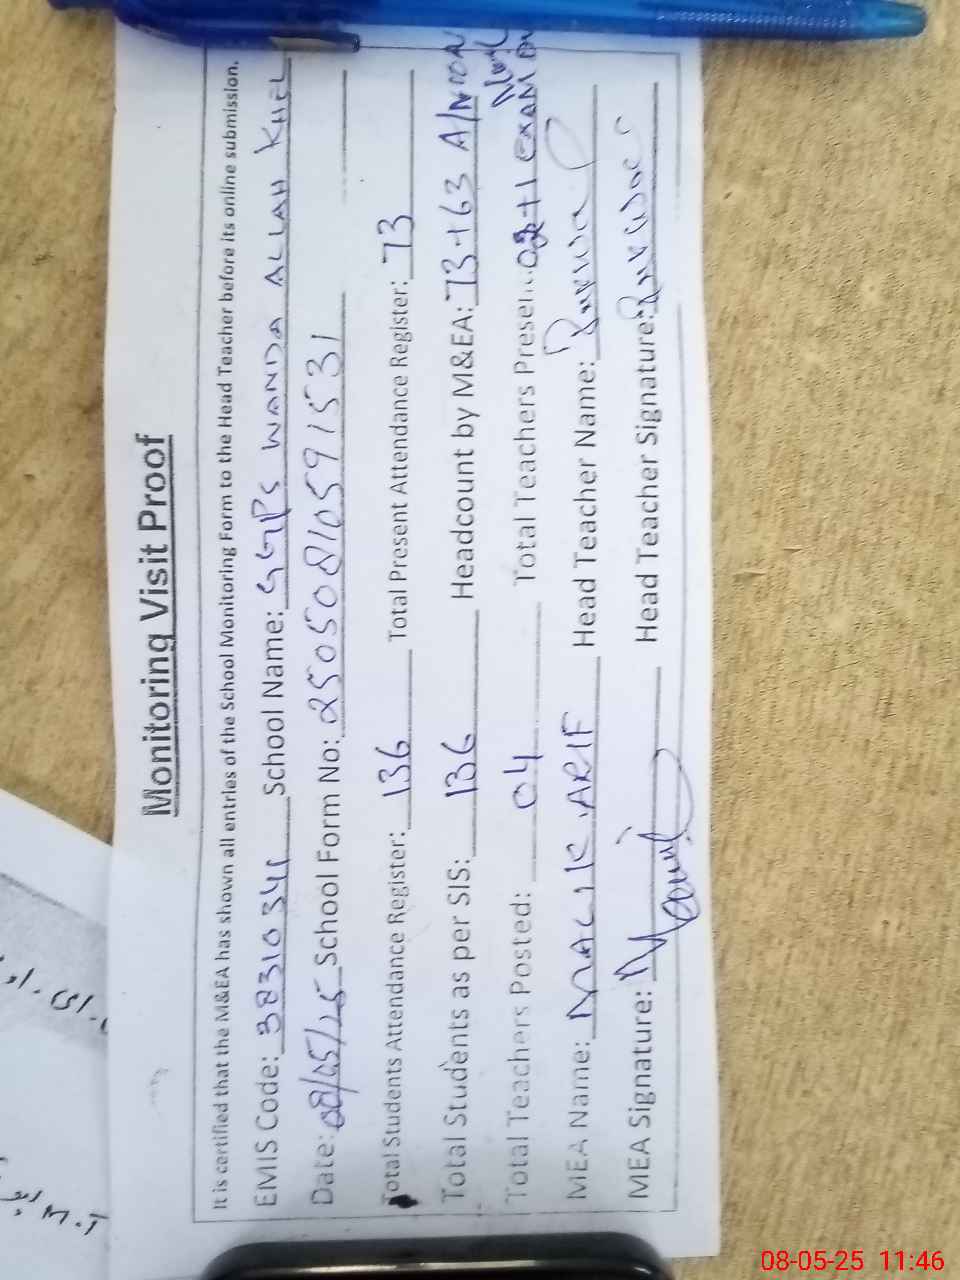 Monitoring Visit Proof
It is certified that the M&EA has shown all entries of the School Monitoring Form to the Head Teacher before its online submission.
EMIS Code: 38310341 School Name: GGPS WANDA ALLAH KHEL
Date: 08/05/25 School Form No: 25050810591531
Total Students Attendance Register: 136 Total Present Attendance Register: 73
Total Students as per SIS: 136 Headcount by M&EA: 73+63 A/NOON
Total Teachers Posted: 04 Total Teachers Present: 03+1 EXAM
MEA Name: MALIK ARIF Head Teacher Name:
MEA Signature: Head Teacher Signature:
08-05-25 11:46